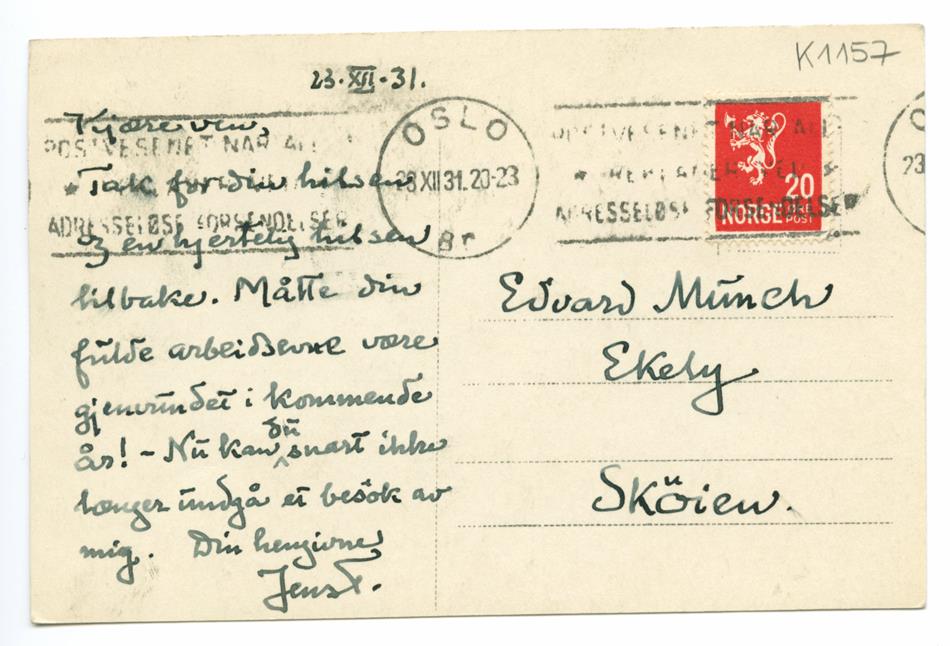 K1157
23·XII·31.
Kjære ven,
Tak for din hilsen
og en hjertelig hilsen
tilbake. Måtte din
fulde arbeidsevne være
gjenvundet i kommende
år! – Nu kan du snart ikke
længer undgå et besök av
mig. Din hengivne
Jens T.
POSTVESENET HAR ALT
ADRESSELØSE FORSENDELSER
OSLO
23 XII 31. 20-23
Br
POSTVESENET HAR ALT
ADRESSELØSE FORSENDELSER
20
NORGE
POST
O
23
Edvard Munch
Ekely
Sköien.